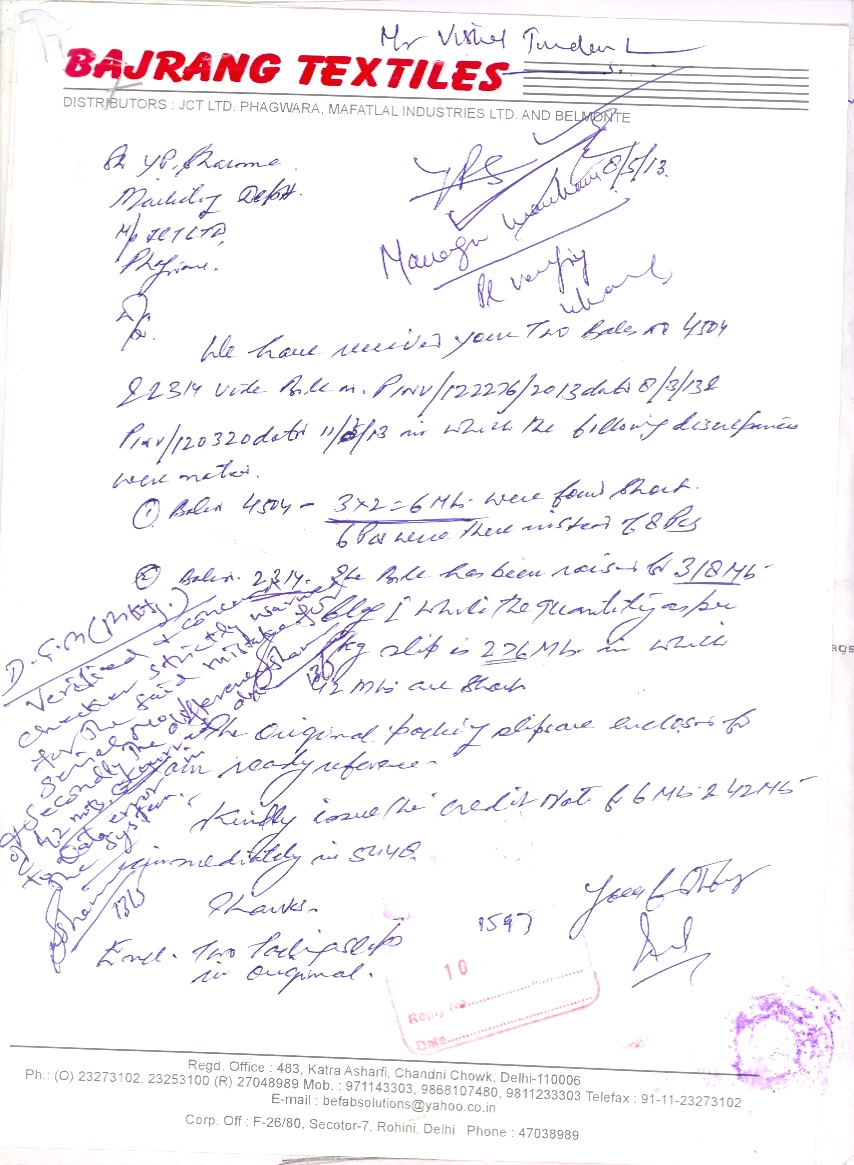 Mr Vishal Tunden
BAJRANG TEXTILES
DISTRIBUTORS : JCT LTD. PHAGWARA, MAFATLAL INDUSTRIES LTD. AND BELMONTE
Sh YP. Sharma
YPS
8/5/13.
Marketing Deptt.
M/s JCT LTD,
Manager
Pl verify
We have received your Two Bales no 4504
& 2314 vide Bill no. PINV/122276/2013 date 8/3/13 &
PINV/120320 date 11/3/13 in which the following discrepancies
were noted.
① Bale no 4504 - 3x2=6 Mts were found short.
6 Pcs were there instead of 8 Pcs
② Bale no. 2314. The Bill has been raised for 318 Mts
while the quantity as per
pkg slip is 276 Mts in which
42 Mts are short
The original packing slips are enclosed for
ready reference.
Kindly issue the credit Note of 6 Mts & 42 Mts
immediately in
Thanks.
Encl. Two Packing slips
in original.
1597
10
Reply No.
Date
D.G.M (Mktg.)
Verified & concerned
checker strictly warned
for the said mistake
Secondly the difference
of 42 mts.
to data error in
the system.
Regd. Office : 483, Katra Asharfi, Chandni Chowk, Delhi-110006
Ph.: (O) 23273102, 23253100 (R) 27048989 Mob. : 971143303, 9868107480, 9811233303 Telefax : 91-11-23273102
E-mail : befabsolutions@yahoo.co.in
Corp. Off : F-26/80, Secotor-7, Rohini, Delhi Phone : 47038989